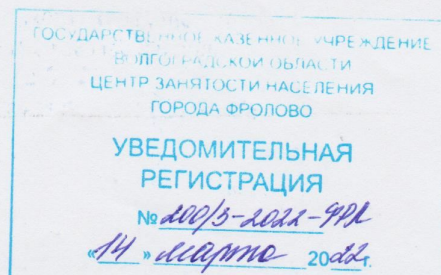 ГОСУДАРСТВЕННОЕ КАЗЕННОЕ УЧРЕЖДЕНИЕ
ВОЛГОГРАДСКОЙ ОБЛАСТИ
ЦЕНТР ЗАНЯТОСТИ НАСЕЛЕНИЯ
ГОРОДА ФРОЛОВО
УВЕДОМИТЕЛЬНАЯ
РЕГИСТРАЦИЯ
№ 200/3-2022-ФРЛ
«14» марта 2022г.